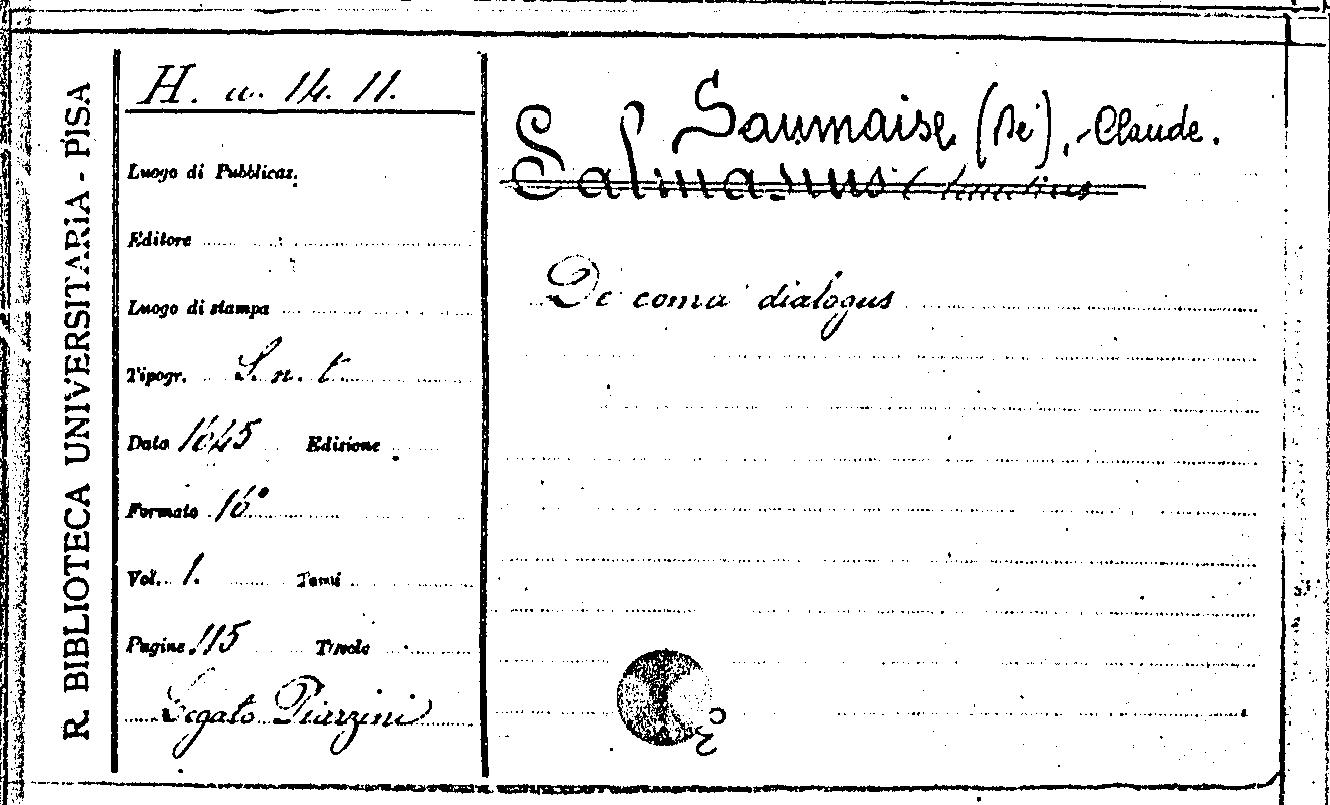 R. BIBLIOTECA UNIVERSITARIA - PISA
H. u. 14. 11.
Luogo di Pubblicaz.
Editore
Luogo di stampa
Tipogr. S. n. t.
Data 1645 Edizione
Formato 16°
Vol. 1. Tomi
Pagine 115 Tavole
Legato Piazzini
Saumaise (De), Claude.
Salmasius Claudius
De coma dialogus